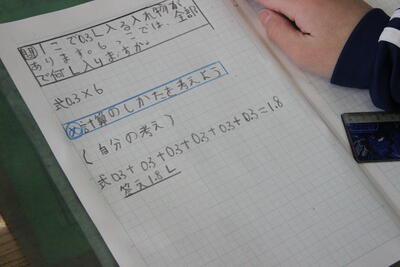 問 1こで0.3L入る入れ物が
あります。6こでは、全部
で何L入りますか。
式0.3×6
め計算のしかたを考えよう
(自分の考え)
式0.3+0.3+0.3+0.3+0.3+0.3=1.8
答え1.8L